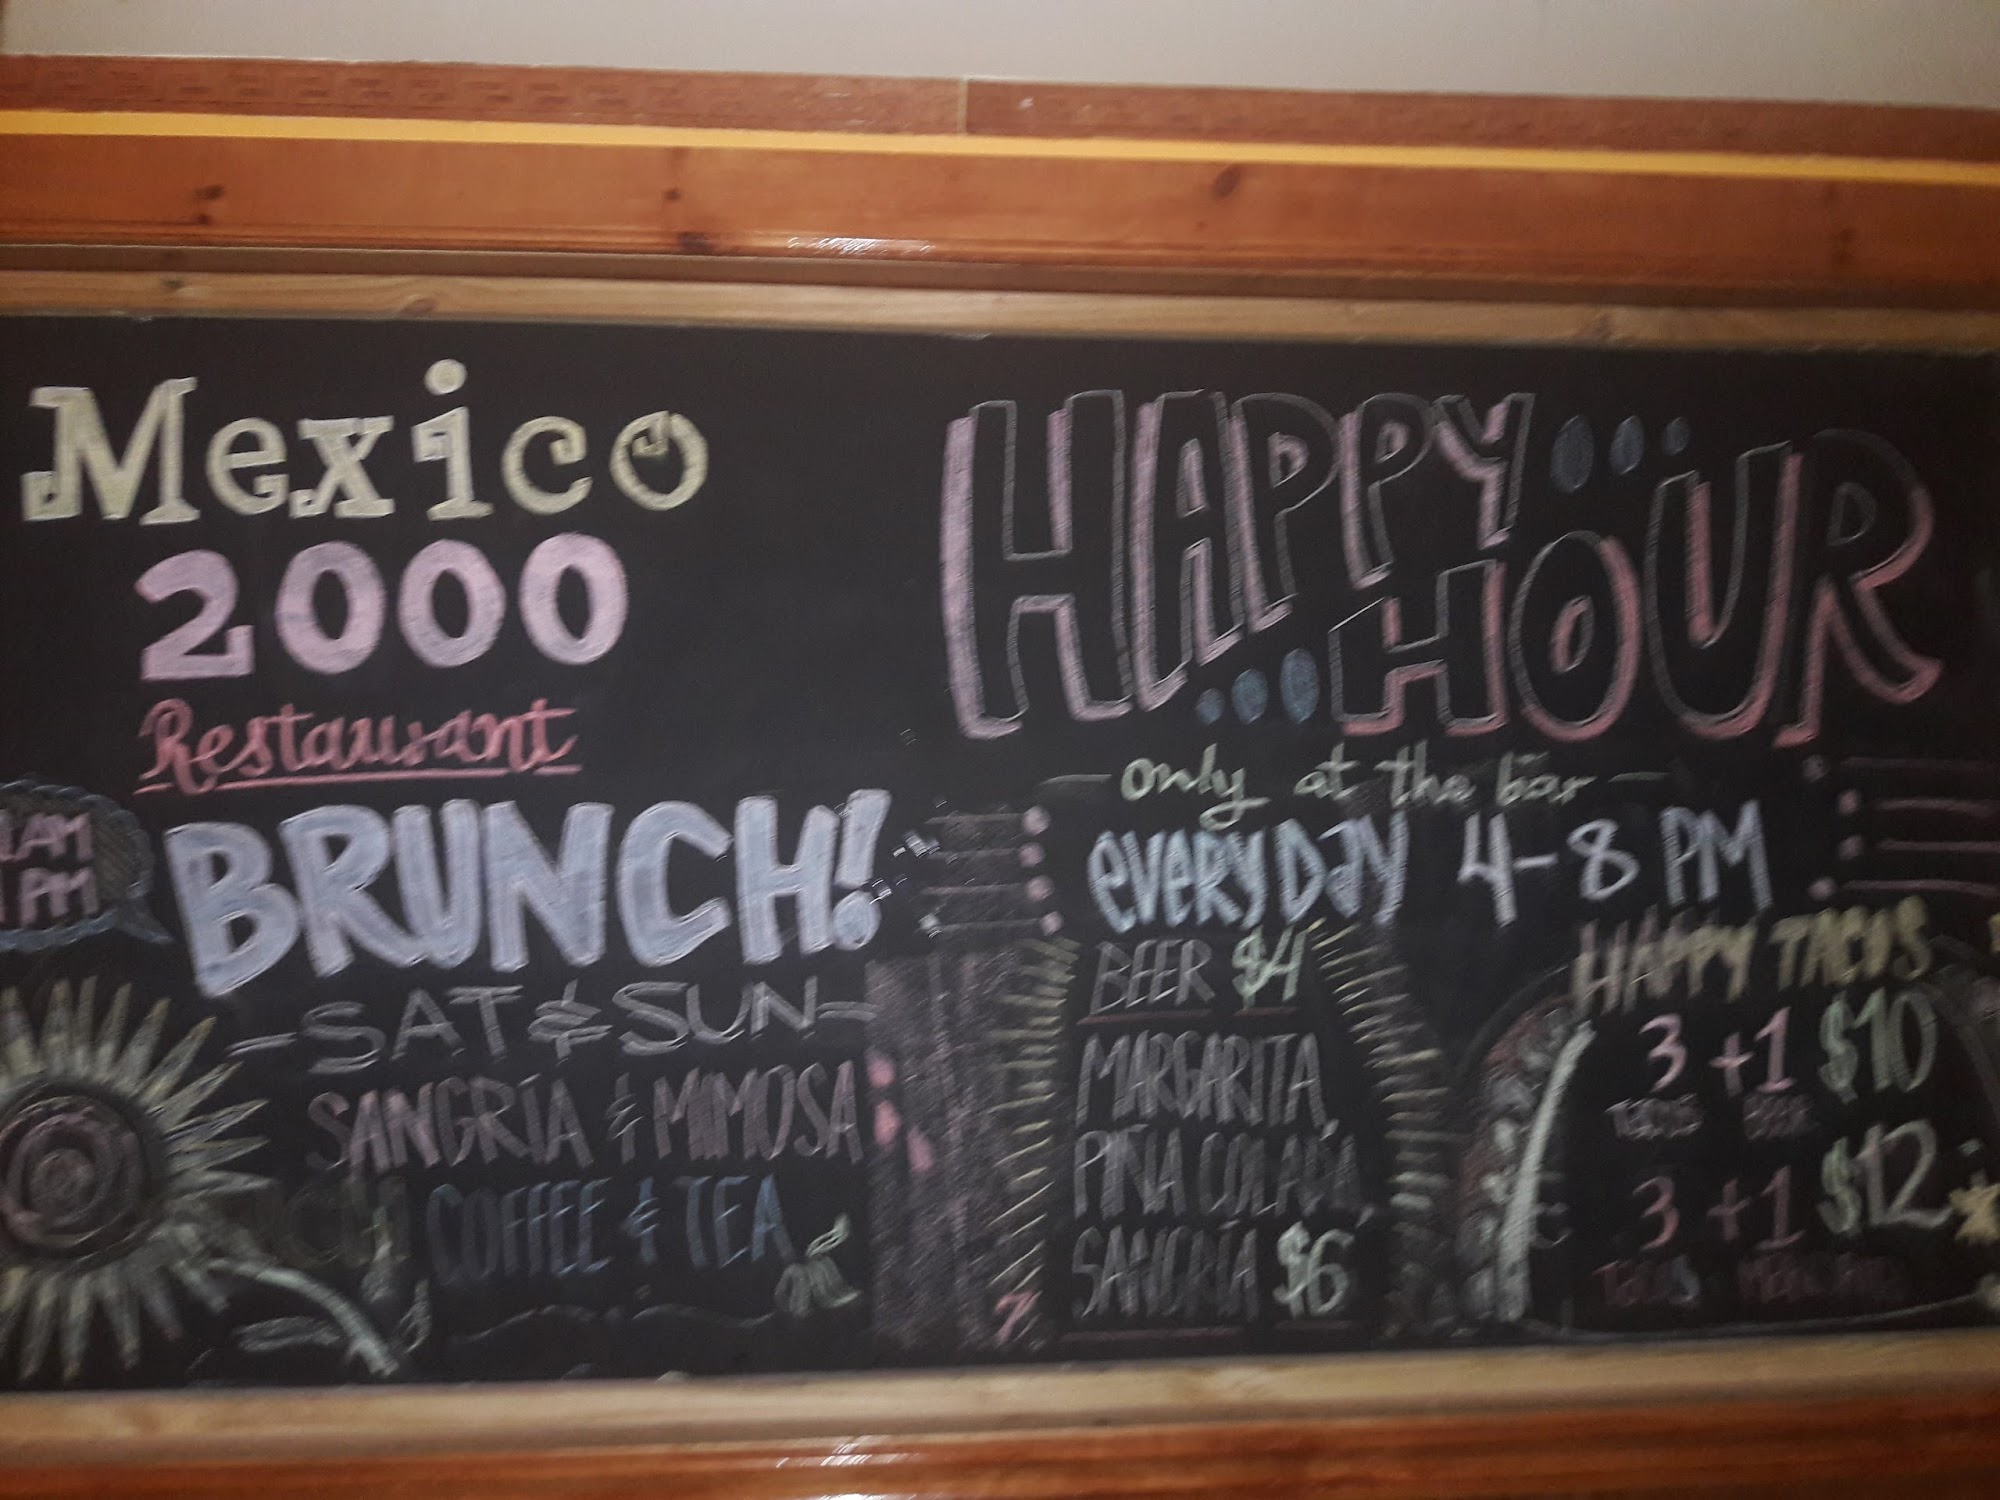 Mexico
2000
Restaurant
AM
PM
BRUNCH!
-SAT & SUN-
SANGRÍA & MIMOSA
COFFEE & TEA
HAPPY...
...HOUR
- only at the bar -
EVERYDAY 4-8 PM
BEER $4
MARGARITA,
PIÑA COLADA,
SANGRÍA $6
HAPPY TACOS
3 +1 $10
TACOS BEER
3 +1 $12
TACOS